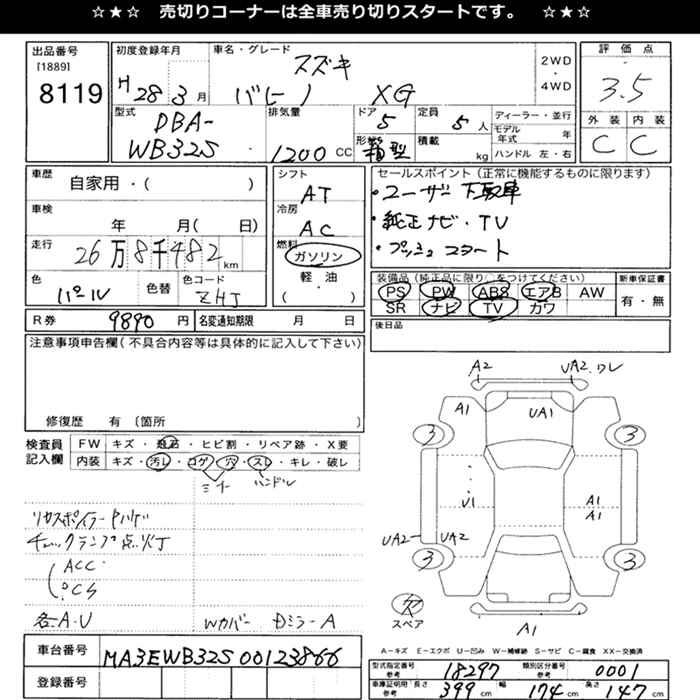 ☆★☆ 売切りコーナーは全車売り切りスタートです。 ☆★☆
出品番号
[1889]
8119
初度登録年月
H 28年 3月
車名・グレード
スズキ
バレーノ XG
2WD
・
4WD
評価点
3.5
外装 内装
C C
型式
DBA-
WB32S
排気量
1200 CC
ドア
5
形状
箱型
定員
5人
積載
kg
ディーラー・並行
モデル年式 年
ハンドル 左・右
車歴
自家用・( )
車検
年 月( 日)
走行
26万8千482 km
色
パール
色替
色コード
ZHJ
シフト
AT
冷房
AC
燃料
ガソリン
軽・油
( )
セールスポイント(正常に機能するものに限ります)
・ユーザー下取車
・純正ナビ・TV
・プッシュスタート
装備品(純正品に限り○をつけてください)
PS PW ABS エアB AW
SR ナビ TV カワ
新車保証書
有・無
後日品
R券 9890円
名変通知期限 月 日
注意事項申告欄(不具合内容等は具体的に記入して下さい)
修復歴 有(箇所
検査員
記入欄
FW キズ・飛石・ヒビ割・リペア跡・X要
内装 キズ・汚レ・コゲ・穴・スレ・キレ・破レ
ミナ ハンドル
リヤスポイラー
チェックランプ点灯
ACC
OCS
各A・U
Wカバー DミラーA
車台番号
MA3EWB32S00123866
登録番号
A2
UA2.ワレ
A1
UA1
3
3
U1
A1
A1
UA2
UA2
3
3
欠
スペア
A1
A-キズ E-エクボ U-凹み W-補修跡 S-サビ C-腐食 XX-交換済
型式指定番号
参考
18297
類別区分番号
参考
0001
車庫証明用
参考
長さ 399 cm 幅 174 cm 高さ 147 cm